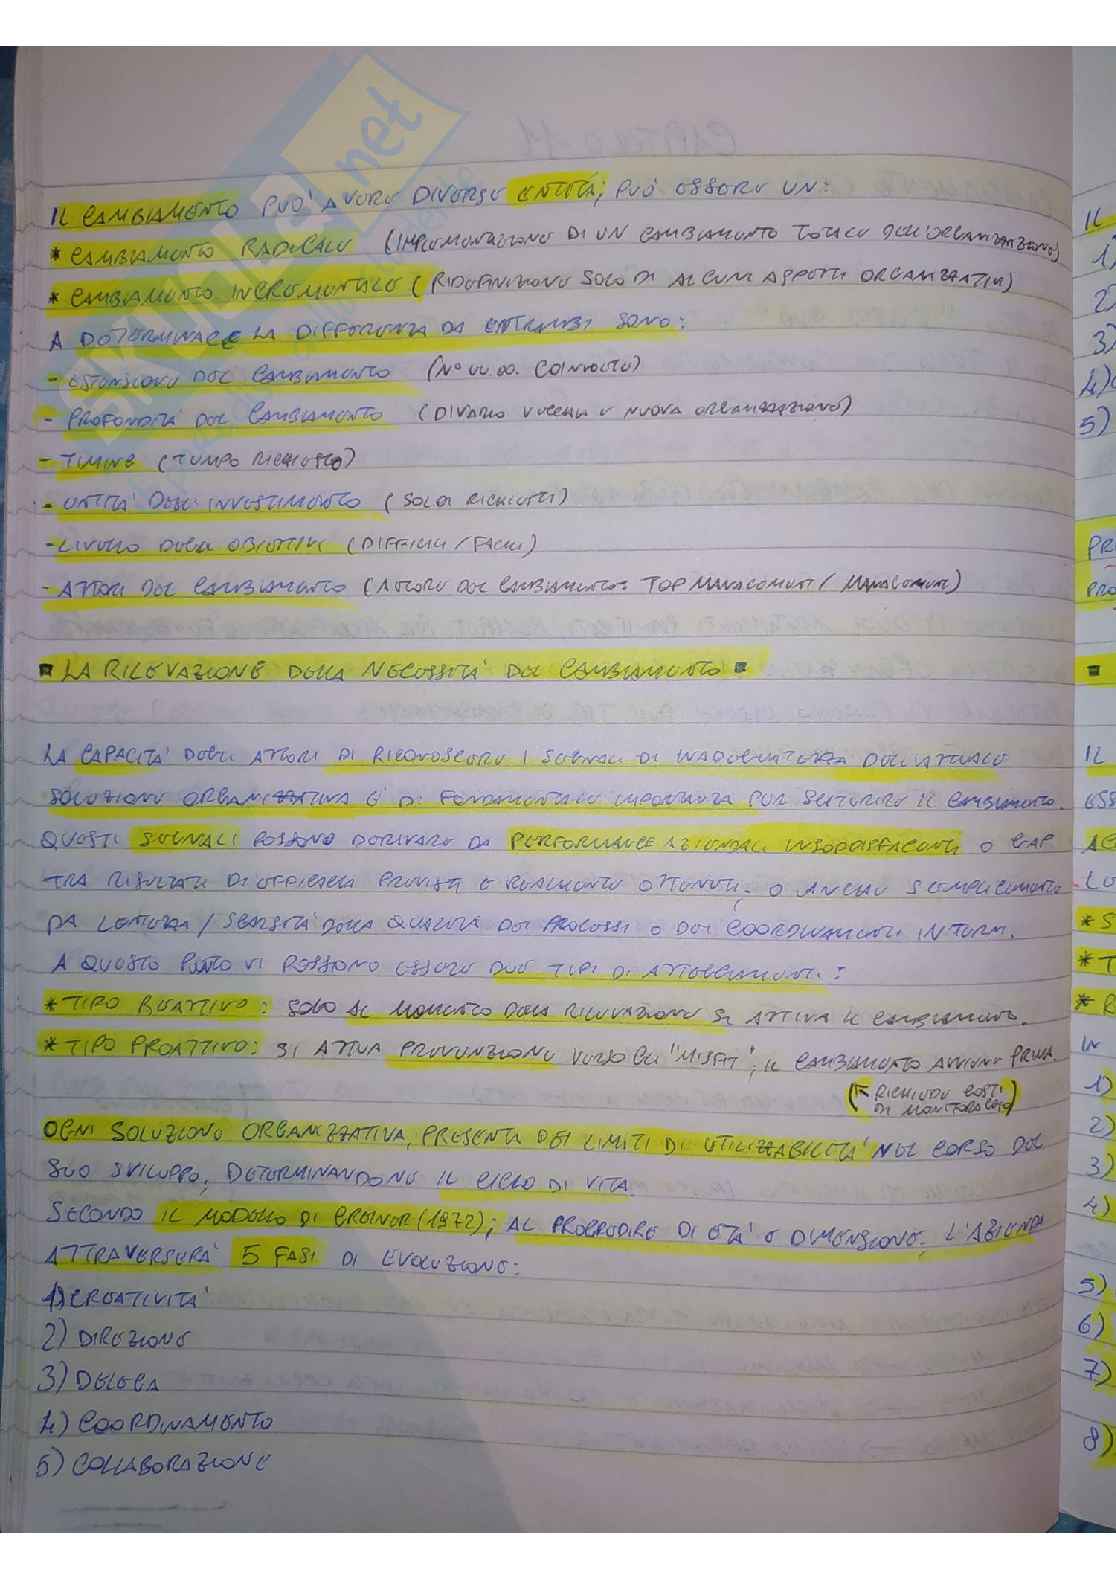 IL CAMBIAMENTO PUO' AVERE DIVERSE ENTITÀ; PUÓ ESSERE UN:
* CAMBIAMENTO RADICALE (IMPLEMENTAZIONE DI UN CAMBIAMENTO TOTALE DELL'ORGANIZZAZIONE)
* CAMBIAMENTO INCREMENTALE (RIDEFINIZIONE SOLO DI ALCUNI ASPETTI ORGANIZZATIVI)
A DETERMINARE LA DIFFERENZA DA ENTRAMBI SONO:
- ESTENSIONE DEL CAMBIAMENTO (N° UU.OO. COINVOLTE)
- PROFONDITÀ DEL CAMBIAMENTO (DIVARIO VECCHIA E NUOVA ORGANIZZAZIONE)
- TIMING (TEMPO RICHIESTO)
- ENTITÀ DEGLI INVESTIMENTO (SOLDI RICHIESTI)
- LIVELLO DEGLI OBIETTIVI (DIFFICILI / FACILI)
- ATTORI DEL CAMBIAMENTO (ATTORE DEL CAMBIAMENTO: TOP MANAGEMENT / MANAGEMENT)
▪ LA RILEVAZIONE DELLA NECESSITÀ DEL CAMBIAMENTO ▪
LA CAPACITÀ DEGLI ATTORI DI RICONOSCERE I SEGNALI DI INADEGUATEZZA DELL'ATTUALE
SOLUZIONE ORGANIZZATIVA È DI FONDAMENTALE IMPORTANZA PER SUGGERIRE IL CAMBIAMENTO.
QUESTI SEGNALI POSSONO DERIVARE DA PERFORMANCE AZIENDALI INSODDISFACENTI O GAP
TRA RISULTATI DI EFFICACIA PREVISTI E REALMENTE OTTENUTI; O ANCHE SEMPLICEMENTE
DA LENTEZZA / SCARSITÀ DELLA QUALITÀ DEI PROCESSI O DEI COORDINAMENTI INTERNI.
A QUESTO PUNTO VI POSSONO ESSERE DUE TIPI DI ATTEGGIAMENTI:
* TIPO REATTIVO: SOLO AL MOMENTO DELLA RILEVAZIONE SI ATTIVA IL CAMBIAMENTO.
* TIPO PROATTIVO: SI ATTUA PREVENZIONE VERSO GLI "MISFIT"; IL CAMBIAMENTO AVVIENE PRIMA.
(↖ RICHIEDE COSTI
DI MONITORAGGIO)
OGNI SOLUZIONE ORGANIZZATIVA, PRESENTA DEI LIMITI DI UTILIZZABILITÀ NEL CORSO DEL
SUO SVILUPPO, DETERMINANDONE IL CICLO DI VITA.
SECONDO IL MODELLO DI GREINER (1972); AL PROGREDIRE DI ETÀ E DIMENSIONE, L'AZIENDA
ATTRAVERSERÀ 5 FASI DI EVOLUZIONE:
1) CREATIVITÀ
2) DIREZIONE
3) DELEGA
4) COORDINAMENTO
5) COLLABORAZIONE
SKUOLA.net
IL
1)
2)
3)
4)
5)
PR
PRO
▪
IL
ESS
AG
LO
* S
* T
* R
IN
1)
2)
3)
4)
5)
6)
7)
8)